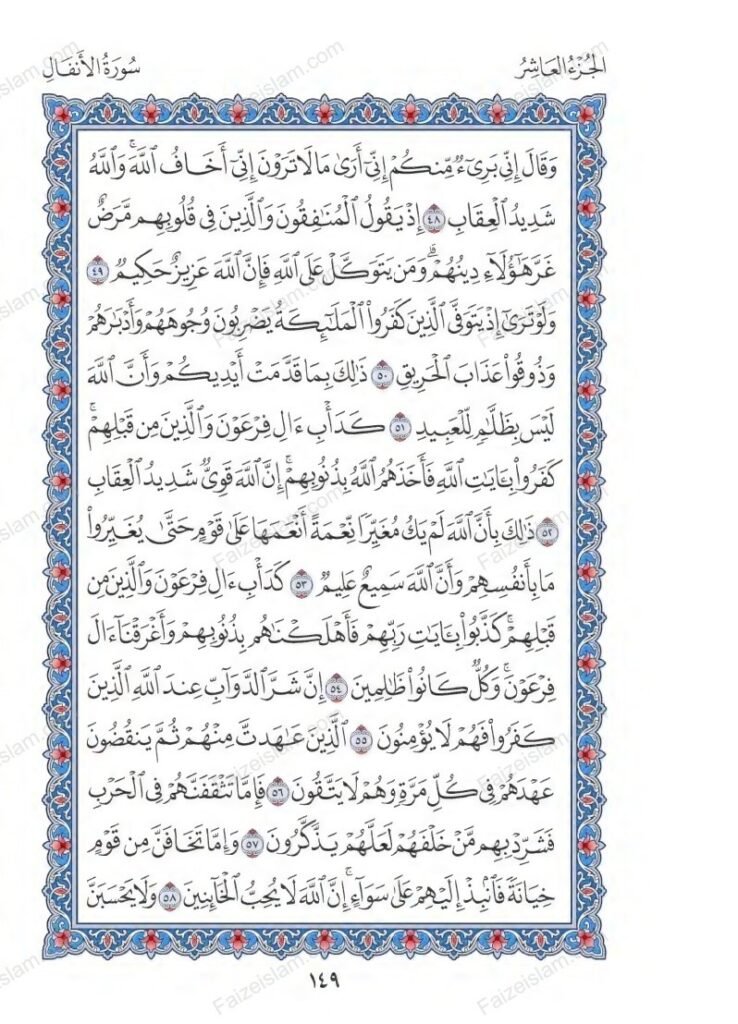 الجُزءُ العَاشِرُ سُورَةُ الأَنفَالِ
وَقَالَ إِنِّى بَرِىٓءٌ مِّنكُمْ إِنِّىٓ أَرَىٰ مَا لَا تَرَوْنَ إِنِّىٓ أَخَافُ ٱللَّهَ ۚ وَٱللَّهُ
شَدِيدُ ٱلْعِقَابِ ٤٨ إِذْ يَقُولُ ٱلْمُنَٰفِقُونَ وَٱلَّذِينَ فِى قُلُوبِهِم مَّرَضٌ
غَرَّ هَٰٓؤُلَآءِ دِينُهُمْ ۗ وَمَن يَتَوَكَّلْ عَلَى ٱللَّهِ فَإِنَّ ٱللَّهَ عَزِيزٌ حَكِيمٌ ٤٩
وَلَوْ تَرَىٰٓ إِذْ يَتَوَفَّى ٱلَّذِينَ كَفَرُوا۟ ٱلْمَلَٰٓئِكَةُ يَضْرِبُونَ وُجُوهَهُمْ وَأَدْبَٰرَهُمْ
وَذُوقُوا۟ عَذَابَ ٱلْحَرِيقِ ٥٠ ذَٰلِكَ بِمَا قَدَّمَتْ أَيْدِيكُمْ وَأَنَّ ٱللَّهَ
لَيْسَ بِظَلَّٰمٍ لِّلْعَبِيدِ ٥١ كَدَأْبِ ءَالِ فِرْعَوْنَ وَٱلَّذِينَ مِن قَبْلِهِمْ ۚ
كَفَرُوا۟ بِـَٔايَٰتِ ٱللَّهِ فَأَخَذَهُمُ ٱللَّهُ بِذُنُوبِهِمْ ۗ إِنَّ ٱللَّهَ قَوِىٌّ شَدِيدُ ٱلْعِقَابِ
٥٢ ذَٰلِكَ بِأَنَّ ٱللَّهَ لَمْ يَكُ مُغَيِّرًا نِّعْمَةً أَنْعَمَهَا عَلَىٰ قَوْمٍ حَتَّىٰ يُغَيِّرُوا۟
مَا بِأَنفُسِهِمْ وَأَنَّ ٱللَّهَ سَمِيعٌ عَلِيمٌ ٥٣ كَدَأْبِ ءَالِ فِرْعَوْنَ وَٱلَّذِينَ مِن
قَبْلِهِمْ ۚ كَذَّبُوا۟ بِـَٔايَٰتِ رَبِّهِمْ فَأَهْلَكْنَٰهُم بِذُنُوبِهِمْ وَأَغْرَقْنَآ ءَالَ
فِرْعَوْنَ ۚ وَكُلٌّ كَانُوا۟ ظَٰلِمِينَ ٥٤ إِنَّ شَرَّ ٱلدَّوَآبِّ عِندَ ٱللَّهِ ٱلَّذِينَ
كَفَرُوا۟ فَهُمْ لَا يُؤْمِنُونَ ٥٥ ٱلَّذِينَ عَٰهَدتَّ مِنْهُمْ ثُمَّ يَنقُضُونَ
عَهْدَهُمْ فِى كُلِّ مَرَّةٍ وَهُمْ لَا يَتَّقُونَ ٥٦ فَإِمَّا تَثْقَفَنَّهُمْ فِى ٱلْحَرْبِ
فَشَرِّدْ بِهِم مَّنْ خَلْفَهُمْ لَعَلَّهُمْ يَذَّكَّرُونَ ٥٧ وَإِمَّا تَخَافَنَّ مِن قَوْمٍ
خِيَانَةً فَٱنۢبِذْ إِلَيْهِمْ عَلَىٰ سَوَآءٍ ۚ إِنَّ ٱللَّهَ لَا يُحِبُّ ٱلْخَآئِنِينَ ٥٨ وَلَا يَحْسَبَنَّ
١٤٩
Faizeislam.com